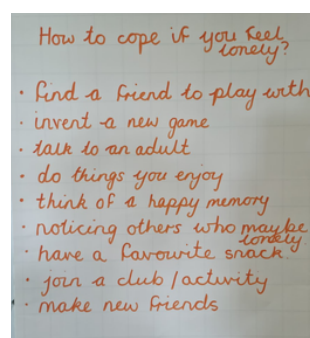 How to cope if you feel
lonely?
· find a friend to play with
· invent a new game
· talk to an adult
· do things you enjoy
· think of a happy memory
· noticing others who maybe
lonely.
· have a favourite snack.
· join a club / activity
· make new friends